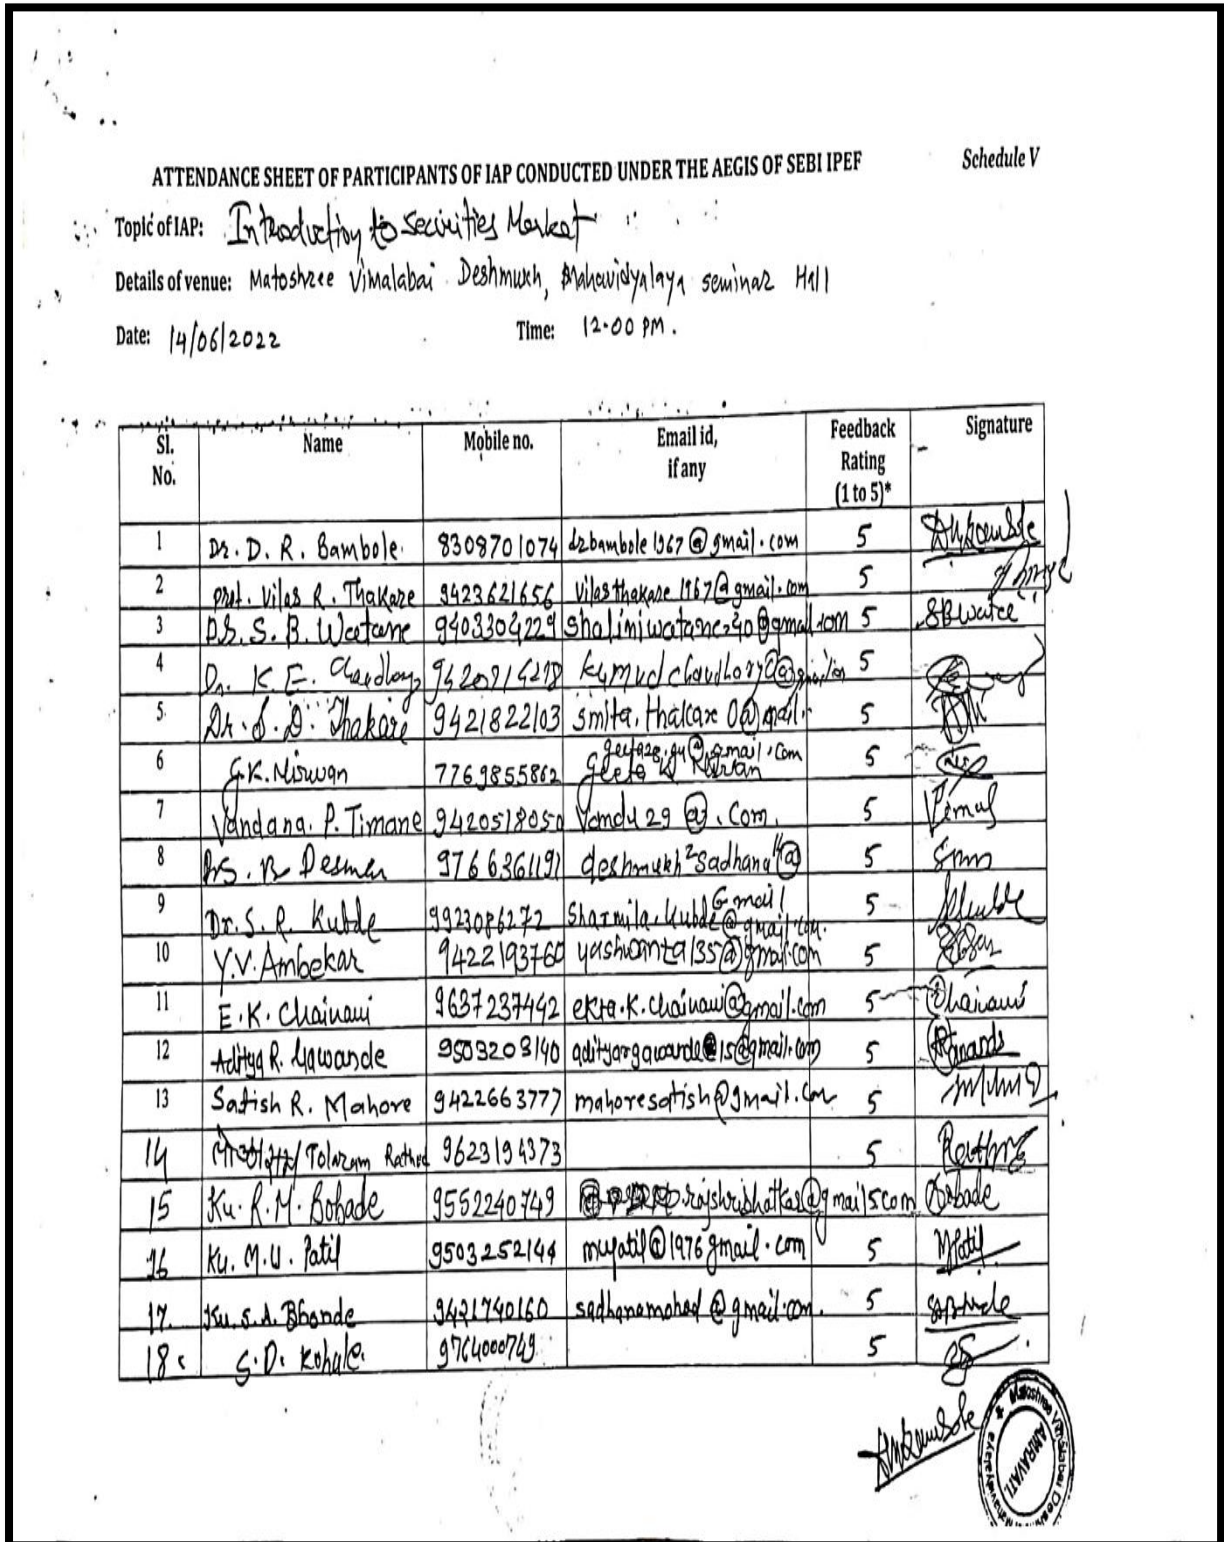 ATTENDANCE SHEET OF PARTICIPANTS OF IAP CONDUCTED UNDER THE AEGIS OF SEBI IPEF Schedule V
Topic of IAP: Introduction to Securities Market
Details of venue: Matoshree Vimalabai Deshmukh, Mahavidyalaya seminar Hall
Date: 14/06/2022 Time: 12.00 PM.
Sl. No. Name Mobile no. Email id, if any Feedback Rating (1 to 5)* Signature
1 Dr. D. R. Bambole 8308701074 drbambole1967@gmail.com 5
2 prof. Vilas R. Thakare 9423621656 vilasthakare1967@gmail.com 5
3 Dr. S. B. Watane 9403304229 shaliniwatane240@gmail.com 5
4 Dr. K. E. 5
5. Dr. S. D. Thakare 9421822103 smita.thakare0@mail. 5
6 G.K. Nirwan 7769855862 5
7 Vandana. P. Timane 9420518050 Vandu29@.Com. 5
8 9766361191 deshmukh2sadhana@ 5
Gmail
9 Dr. S. R. Kubde 9923086272 Sharmila.kubde@gmail.com. 5
10 Y.V. Ambekar 9422193760 yashwanta135@gmail.com 5
11 E.K. Chainani 9637237442 ekta.k.chainani@gmail.com 5
12 Aditya R. Gawande 9503203140 adityargawande15@gmail.com 5
13 Satish R. Mahore 9422663777 mahoresatish@gmail.com 5
14 Tolaram Rathod 9623194373 5
15 Ku. R. M. Bobade 9552240749 rajshribhatkar@gmail5com Bobade
16 Ku. M. U. Patil 9503252144 mupatil@1976gmail.com 5 MPatil
17. Ku. S. A. Bhonde 9421740160 sadhanamohod@gmail.com. 5
18. S. D. Kohale. 9764000749 5
Matoshree Vimalabai
AMRAVATI